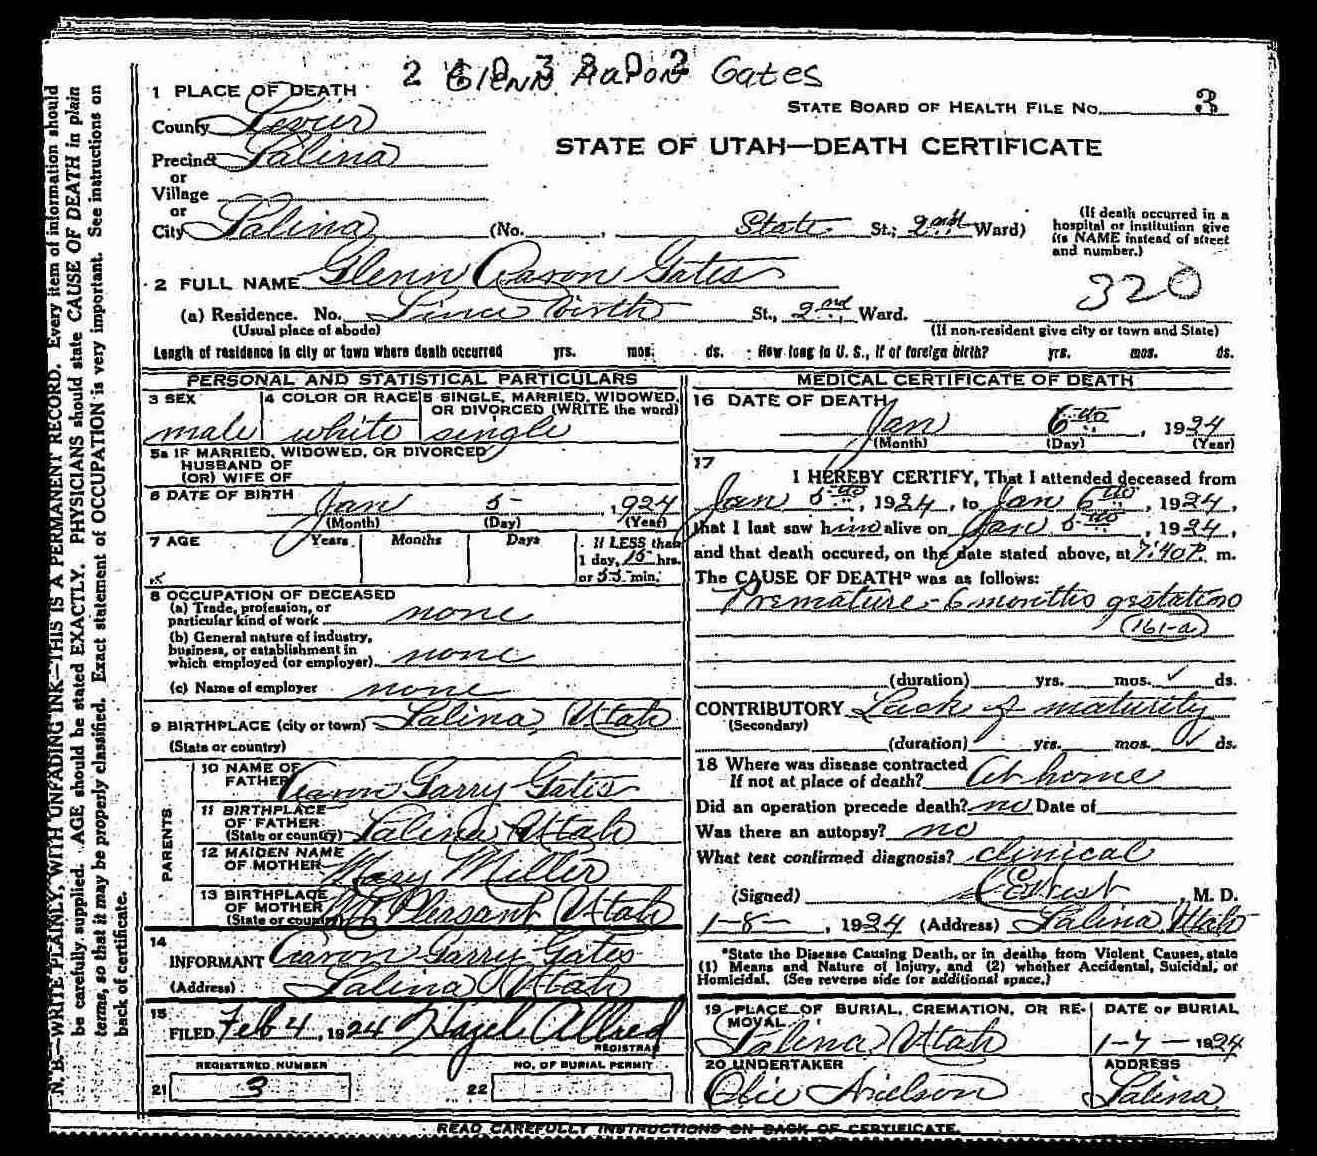 Glenn Aaron Gates
1 PLACE OF DEATH
STATE BOARD OF HEALTH FILE No. 3
County Sevier
STATE OF UTAH—DEATH CERTIFICATE
Precinct Salina
or
Village
or
City Salina (No. , State St.; 2nd Ward)
(If death occurred in a hospital or institution give its NAME instead of street and number.)
2 FULL NAME Glenn Aaron Gates
320
(a) Residence. No. Since birth St., 2nd Ward.
(Usual place of abode) (If non-resident give city or town and State)
Length of residence in city or town where death occurred yrs. mos. ds. How long in U. S., if of foreign birth? yrs. mos. ds.
PERSONAL AND STATISTICAL PARTICULARS
3 SEX 4 COLOR OR RACE 5 SINGLE, MARRIED, WIDOWED, OR DIVORCED (WRITE the word)
male white single
5a IF MARRIED, WIDOWED, OR DIVORCED
HUSBAND OF
(OR) WIFE OF
6 DATE OF BIRTH Jan 5 , 1924
(Month) (Day) (Year)
7 AGE Years Months Days If LESS than
1 day, 15 hrs.
or 55 min.
8 OCCUPATION OF DECEASED
(a) Trade, profession, or
particular kind of work none
(b) General nature of industry,
business, or establishment in
which employed (or employer) none
(c) Name of employer none
9 BIRTHPLACE (city or town) Salina, Utah
(State or country)
PARENTS
10 NAME OF
FATHER Aaron Garry Gates
11 BIRTHPLACE
OF FATHER
(State or country) Salina, Utah
12 MAIDEN NAME
OF MOTHER Mary Miller
13 BIRTHPLACE
OF MOTHER
(State or country) Mt Pleasant, Utah
14
INFORMANT Aaron Garry Gates
(Address) Salina Utah
15
FILED Feb 4, 1924 Hazel Allred
REGISTRAR
REGISTERED NUMBER NO. OF BURIAL PERMIT
21 3 22
MEDICAL CERTIFICATE OF DEATH
16 DATE OF DEATH
Jan 6th , 1924
(Month) (Day) (Year)
17
I HEREBY CERTIFY, That I attended deceased from
Jan 5th, 1924, to Jan 6th, 1924,
that I last saw him alive on Jan 5th, 1924,
and that death occured, on the date stated above, at 7:40 P. m.
The CAUSE OF DEATH* was as follows:
Premature - 6 months gestation
161-a
(duration) yrs. mos. ds.
CONTRIBUTORY Lack of maturity
(Secondary)
(duration) yrs. mos. ds.
18 Where was disease contracted
If not at place of death? At home
Did an operation precede death? no Date of
Was there an autopsy? no
What test confirmed diagnosis? clinical
(Signed) , M. D.
1-8-, 1924 (Address) Salina, Utah
*State the Disease Causing Death, or in deaths from Violent Causes, state
(1) Means and Nature of Injury, and (2) whether Accidental, Suicidal, or
Homicidal. (See reverse side for additional space.)
19 PLACE OF BURIAL, CREMATION, OR RE- DATE OF BURIAL
MOVAL
Salina Utah 1-7-1924
20 UNDERTAKER ADDRESS
Obie Nielson Salina
READ CAREFULLY INSTRUCTIONS ON BACK OF CERTIFICATE.
N. B.—WRITE PLAINLY, WITH UNFADING INK—THIS IS A PERMANENT RECORD. Every item of information should
be carefully supplied. AGE should be stated EXACTLY. PHYSICIANS should state CAUSE OF DEATH in plain
terms, so that it may be properly classified. Exact statement of OCCUPATION is very important. See instructions on
back of certificate.